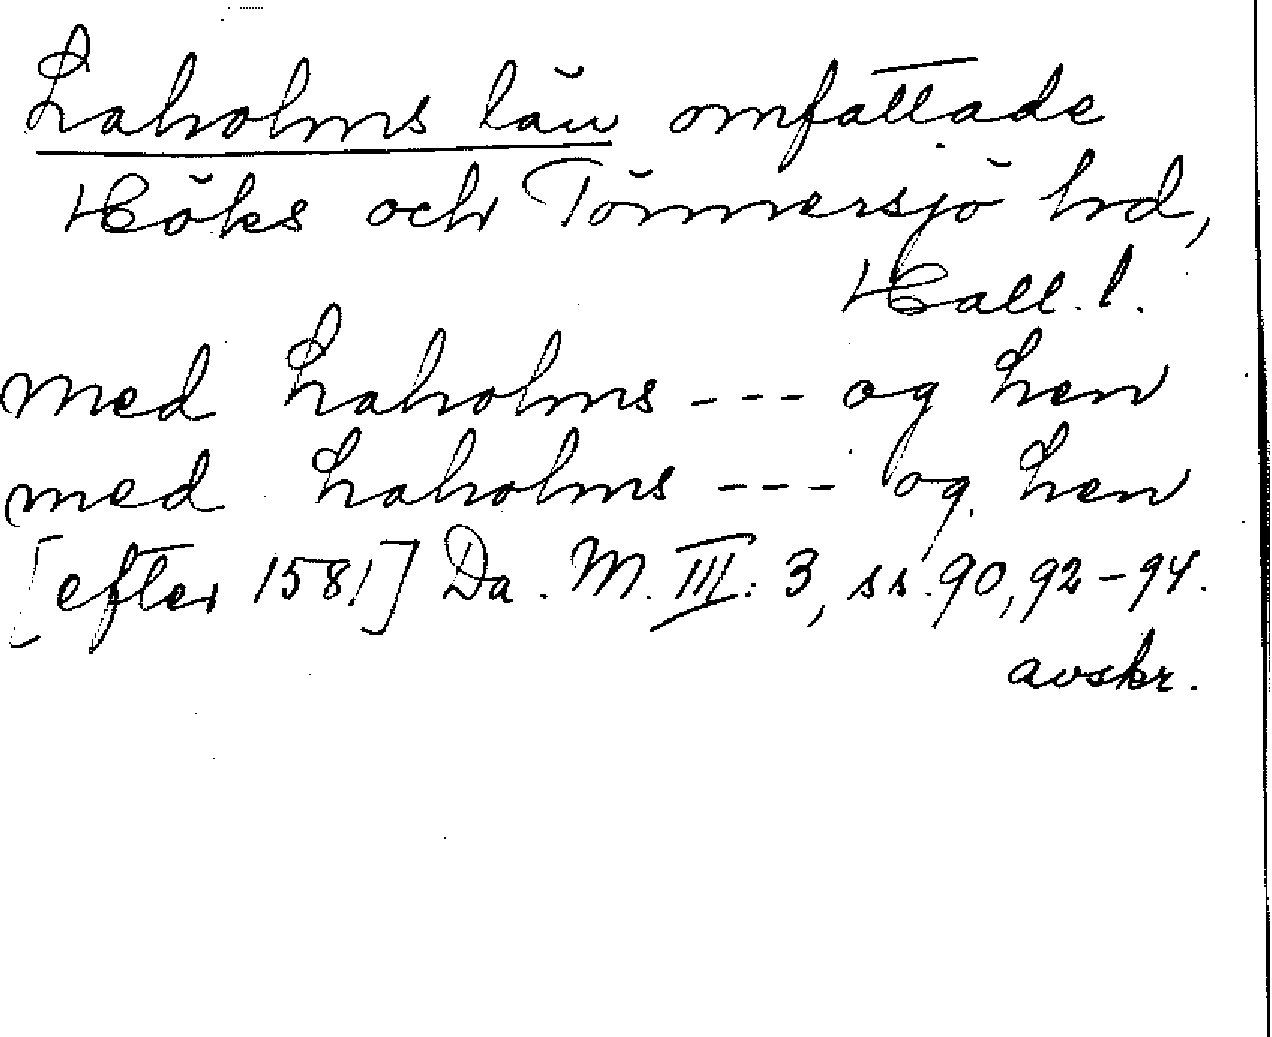 Laholms län omfattade
Höks och Tönnersjö hrd,
Hall. l.
med Laholms --- og Len
med Laholms --- og Len
[efter 1581] Da. M. III: 3, ss. 90, 92-94.
avskr.